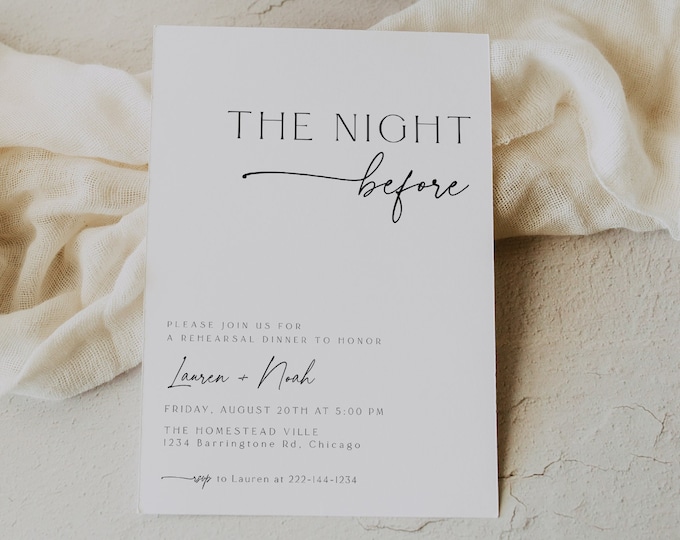 THE NIGHT
before
PLEASE JOIN US FOR
A REHEARSAL DINNER TO HONOR
Lauren + Noah
FRIDAY, AUGUST 20TH AT 5:00 PM
THE HOMESTEAD VILLE
1234 Barringtone Rd, Chicago
rsvp to Lauren at 222-144-1234